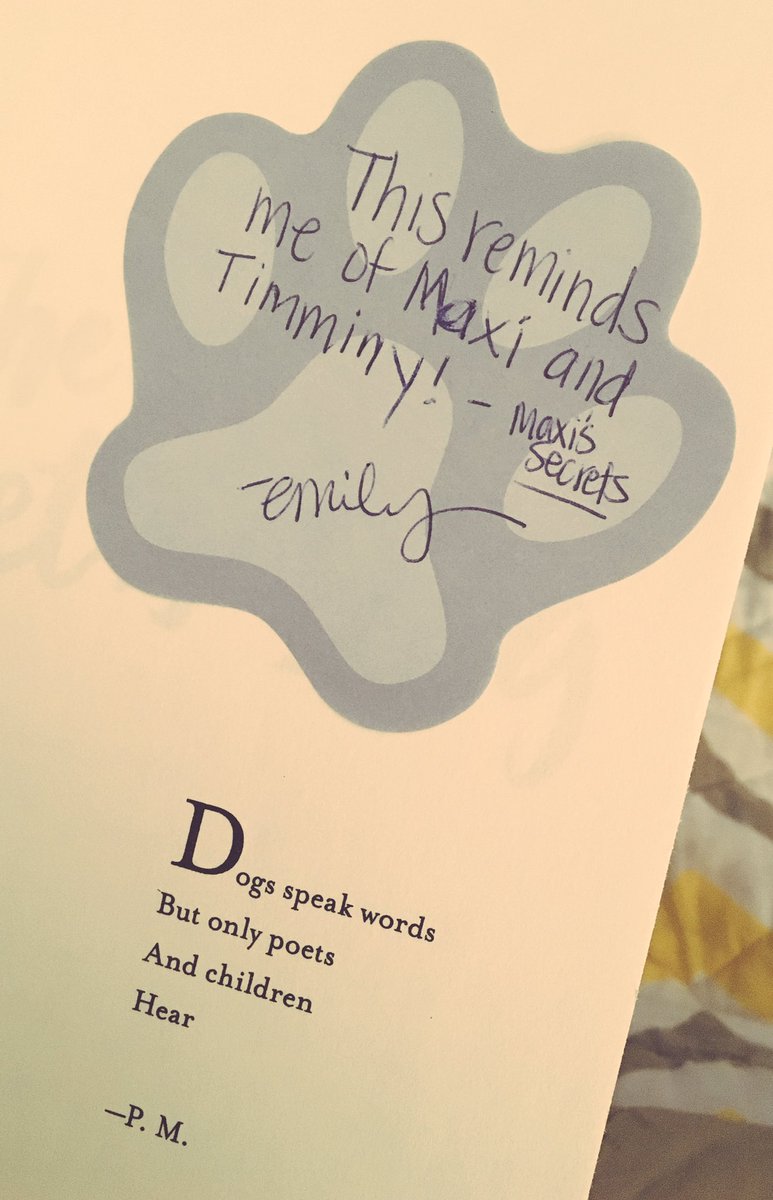 This reminds
me of Maxi and
Timminy! - Maxi's
Secrets
-emily
Dogs speak words
But only poets
And children
Hear
—P. M.